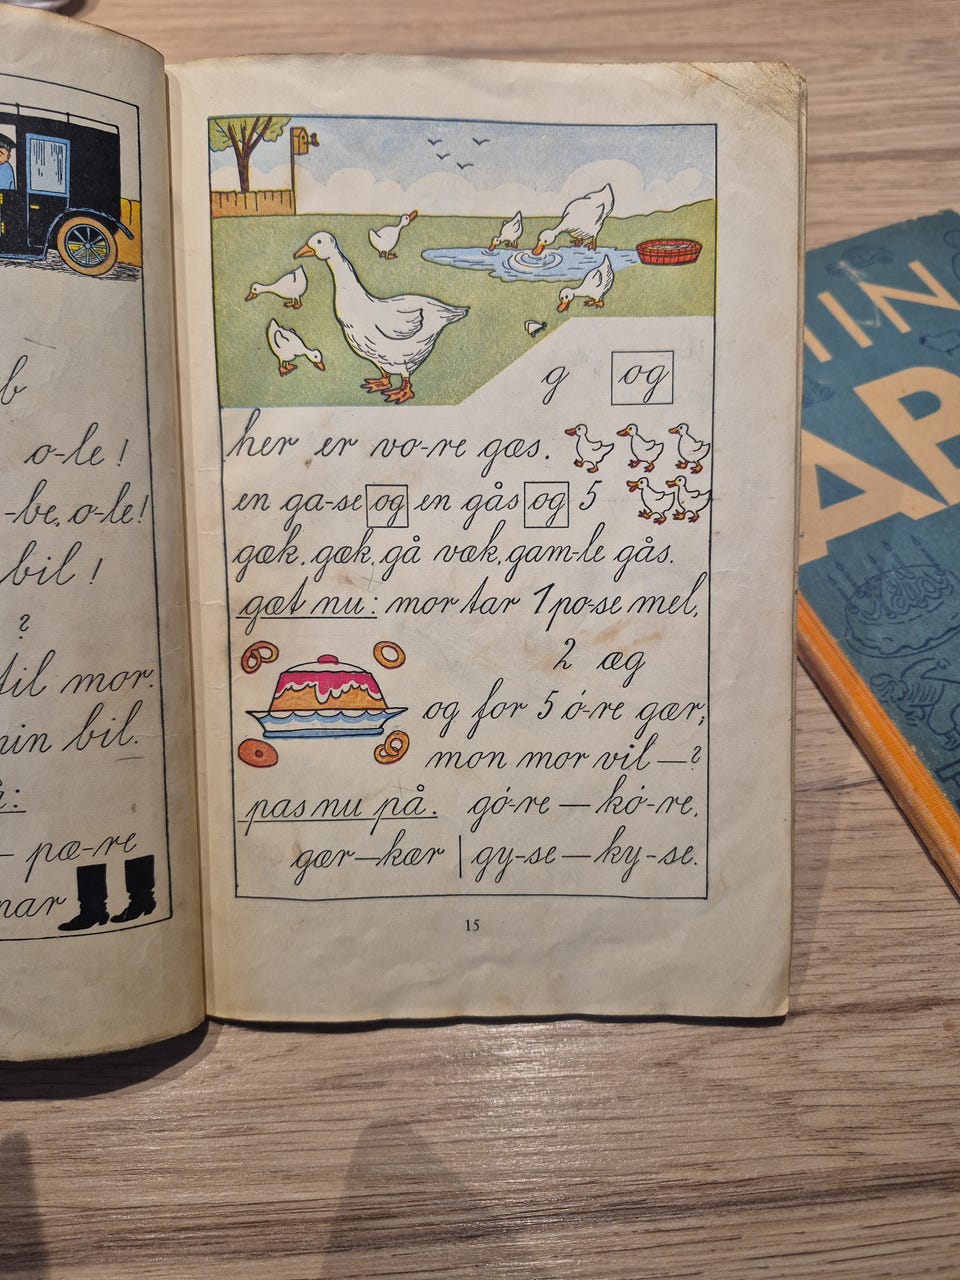 b
o-le!
-be, o-le!
bil!
?
til mor.
min bil.
å:
— pæ-re
nar
g og
her er vo-re gæs.
en ga-se og en gås og 5
gæk, gæk, gå væk, gam-le gås.
gæt nu: mor tar 1 po-se mel,
2 æg
og for 5 ó-re gær;
mon mor vil —?
pas nu på. gó-re — kó-re.
gær — kær | gy-se — ky-se.
15
IN
AP